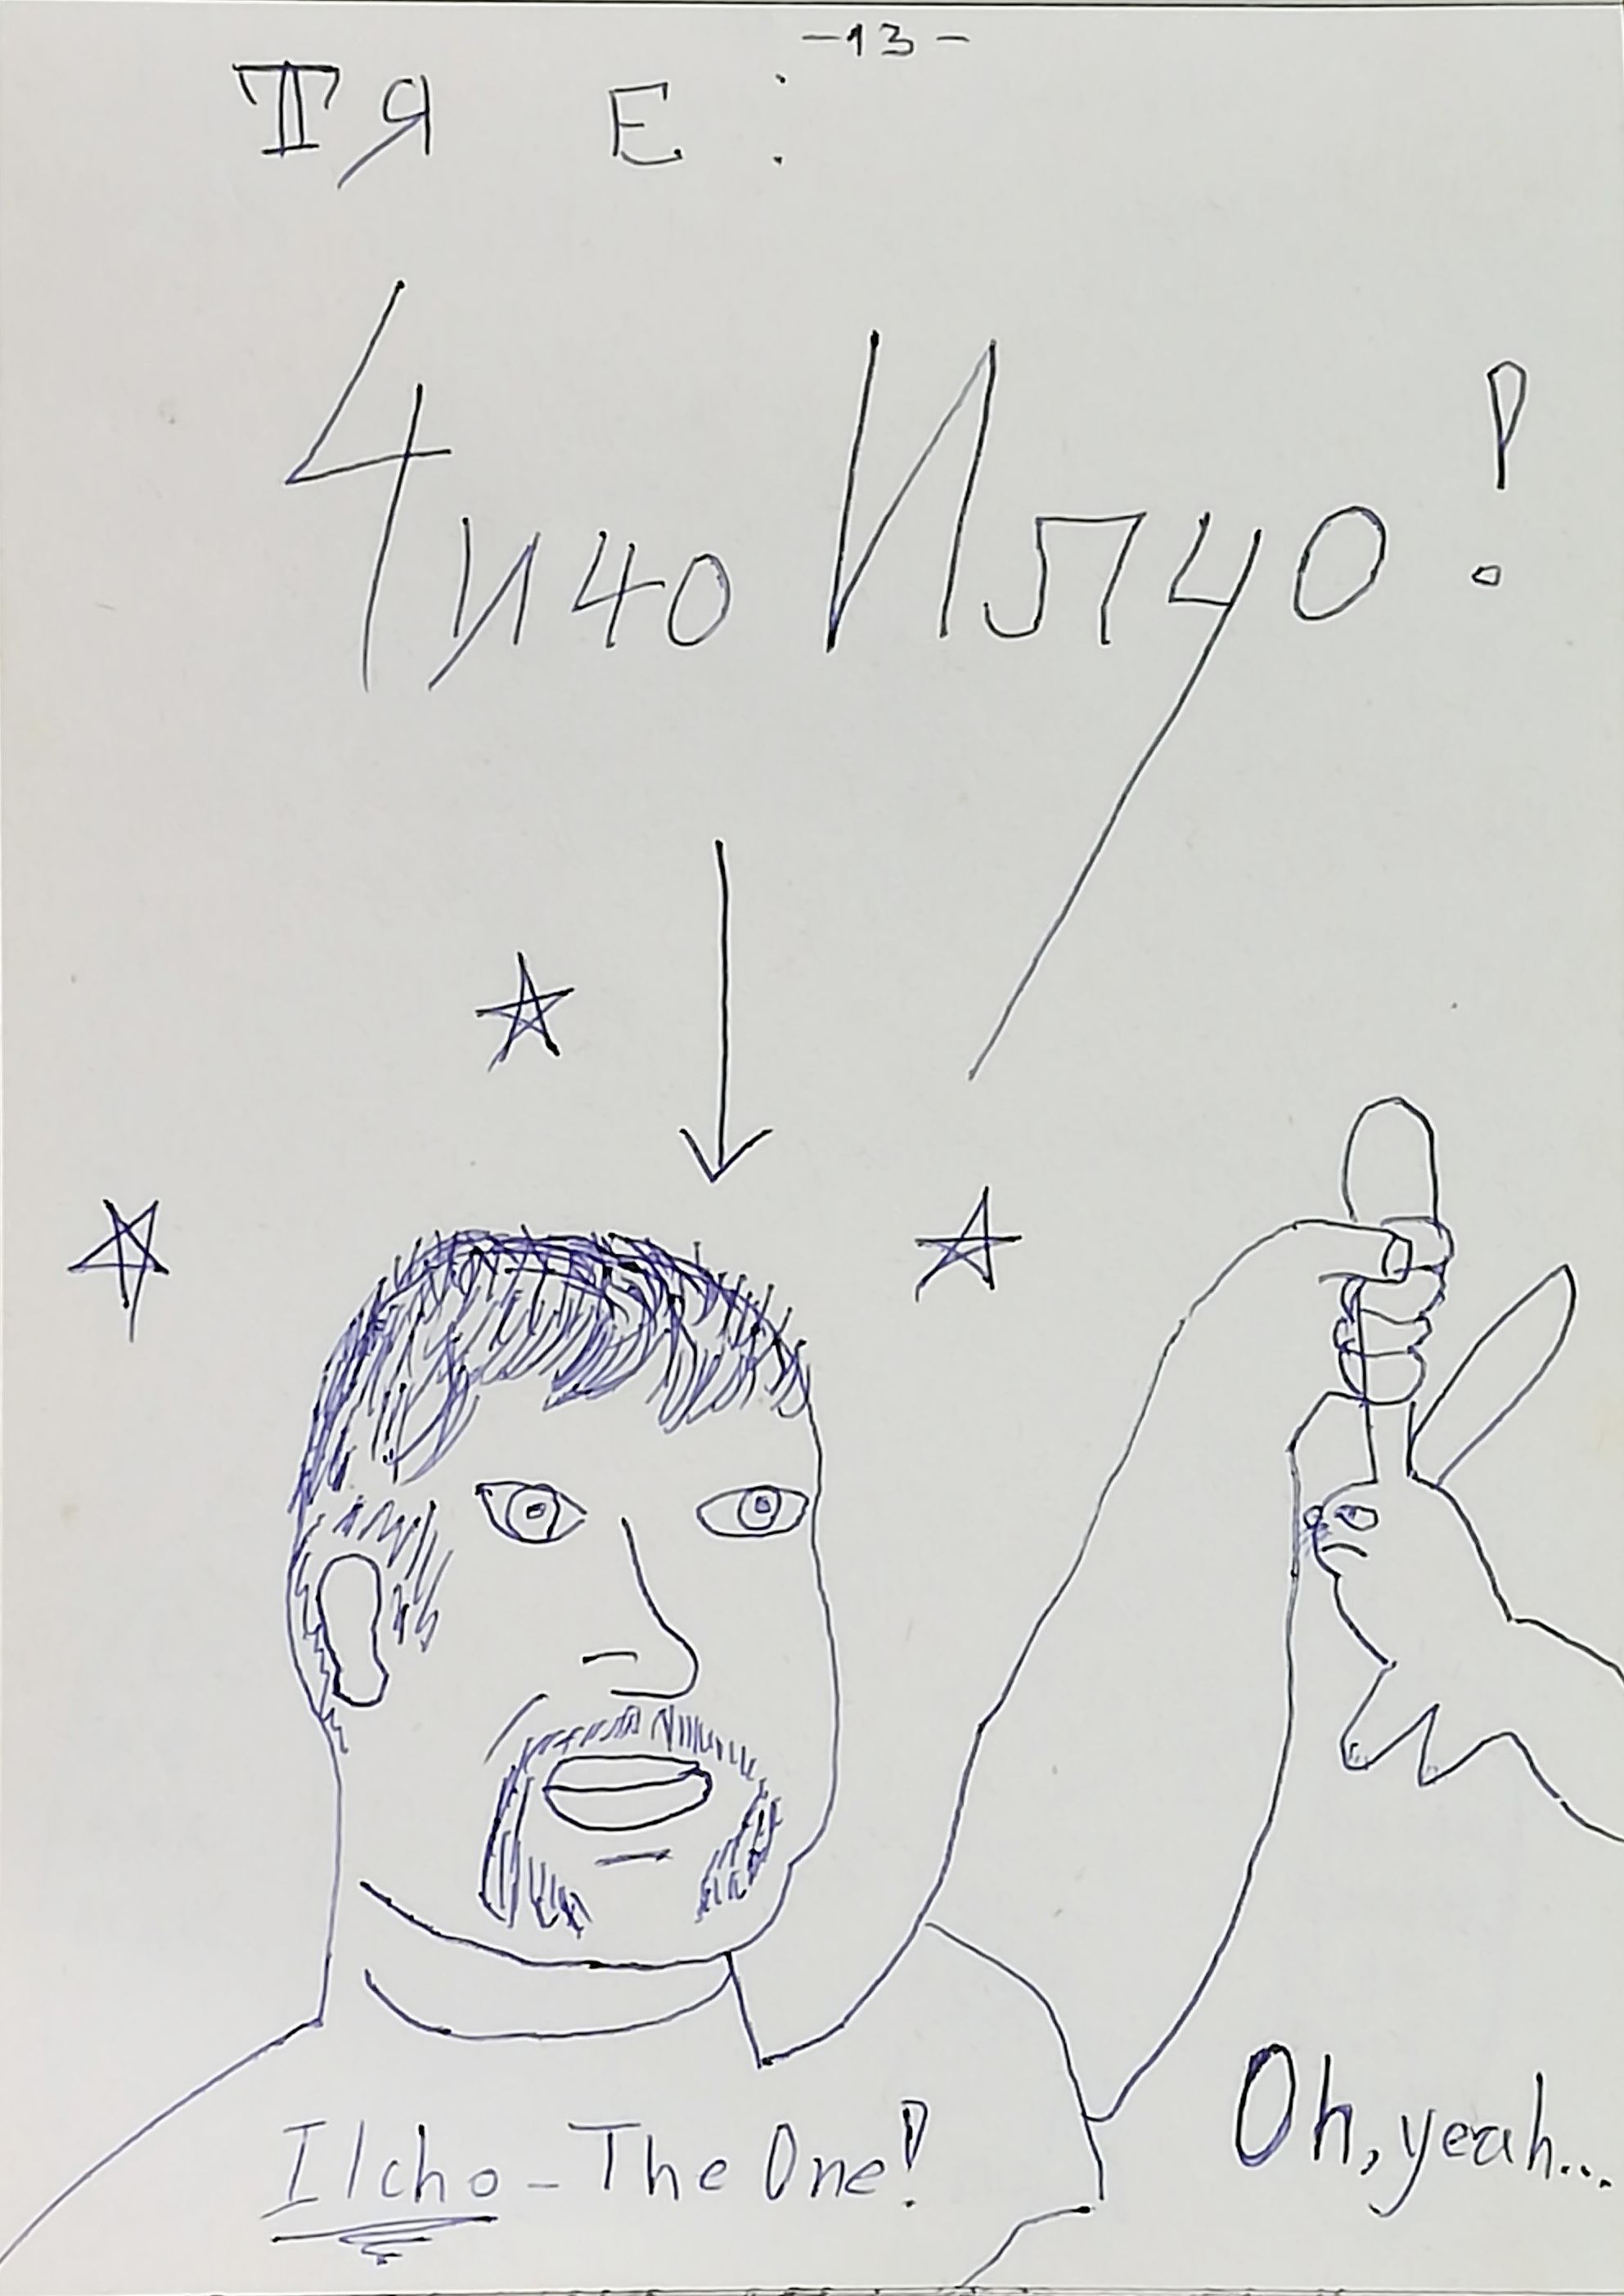 -13-
ТЯ Е:
Чичо Илчо!
Ilcho - The One!
Oh, yeah...